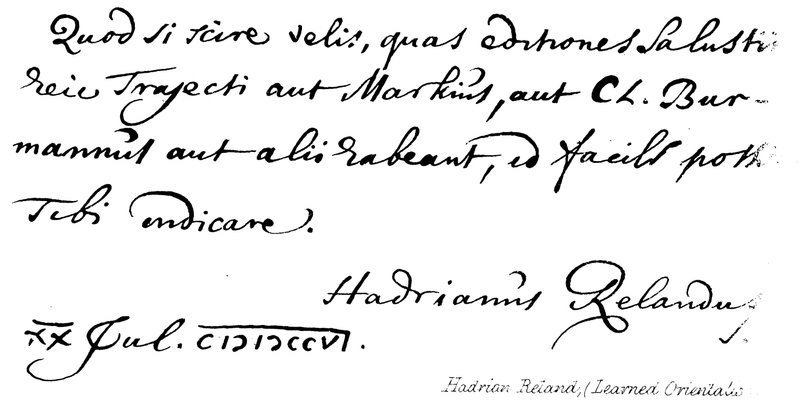 Quod si scire velis, quas editiones Salusti
heic Trajecti aut Markius, aut CL. Bur-
mannus aut alii habeant, id facile
Tibi indicare.
Hadrianus Relandus
XX Jul. CIƆIƆCCVI.
Hadrian Reland, (Learned Orientalis